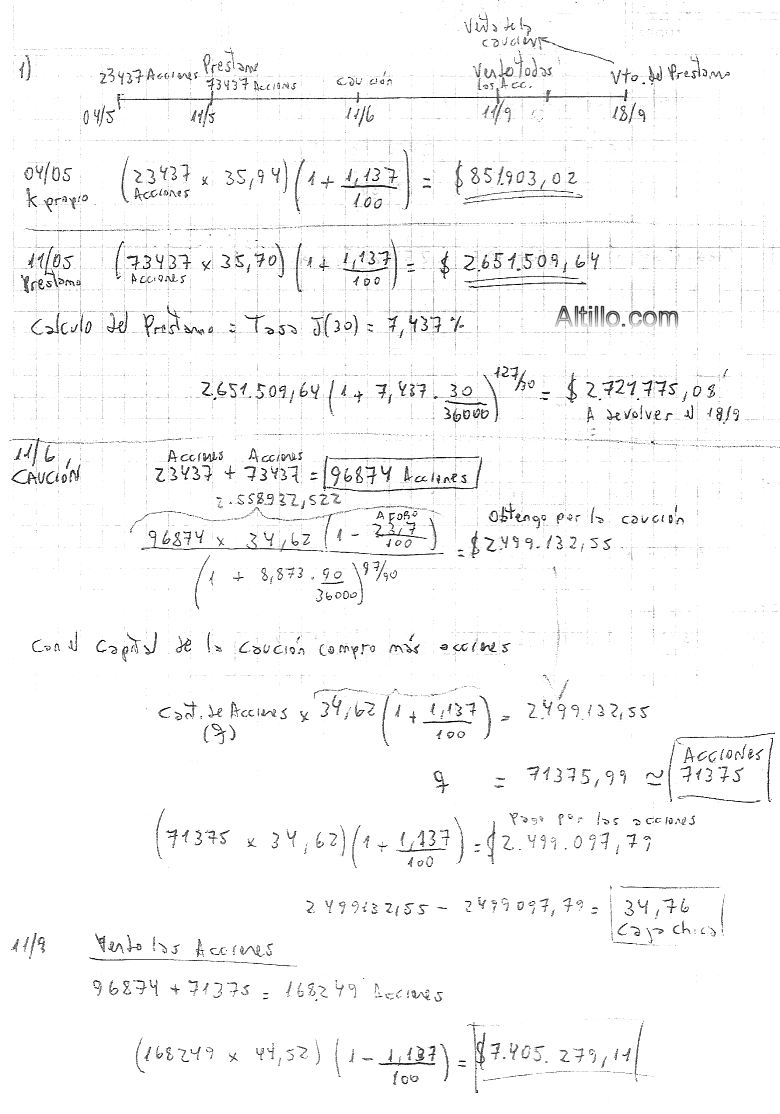 1)
Venta de la
caución
23437 Acciones Prestamo
73437 Acciones
caución
Vento todas
las Acc.
Vto. del Prestamo
04/5 11/5 11/6 11/9 18/9
04/05
K propio
(23437 x 35,94) (1 + 1,137/100) = $ 851.903,02
Acciones
11/05
Prestamo
(73437 x 35,70) (1 + 1,137/100) = $ 2.651.509,64
Acciones
Altillo.com
Calculo del Prestamo = Tasa J(30) = 7,437 %
2.651.509,64 (1 + 7,437 . 30/36000)^127/30 = $ 2.721.775,08
A devolver el 18/9
11/6
CAUCIÓN
Acciones Acciones
23437 + 73437 = 96874 Acciones
2.558.932,522
96874 x 34,62 (1 - 23,7/100)
AFORO
(1 + 8,873 . 90/36000)^97/90
= $2.499.132,55
Obtengo por la caución
Con el Capital de la caución compro más acciones
Cant. de Acciones x 34,62 (1 + 1,137/100) = 2.499.132,55
(q)
q = 71375,99 ≃ 71375
Acciones
(71375 x 34,62) (1 + 1,137/100) = $2.499.097,79
Pago por las acciones
2499132,55 - 2499097,79 = 34,76
Caja chica
11/9 Vento las Acciones
96874 + 71375 = 168249 Acciones
(168249 x 44,52) (1 - 1,137/100) = $7.405.279,11